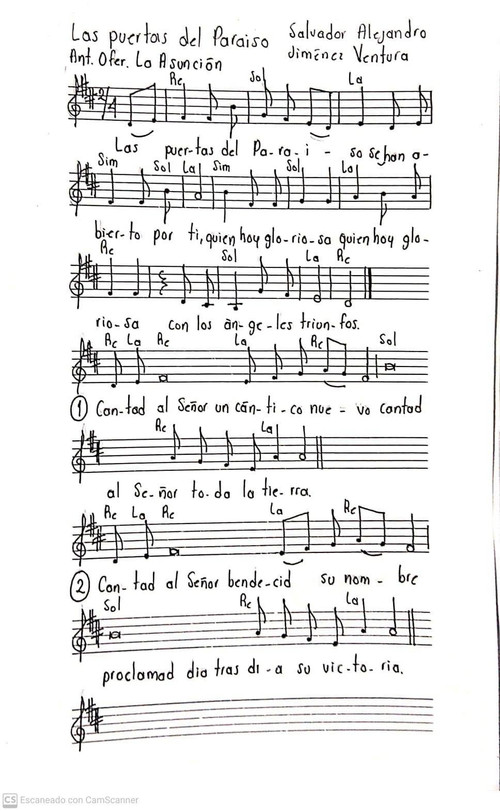 Las puertas del Paraiso Salvador Alejandro
Ant. Ofer. La Asunción Jiménez Ventura
Re Sol La
2/4
Las puer-tas del Pa-ra-i - so se han a-
Sim Sol La Sim Sol La
bier-to por ti, quien hoy glo-rio-sa quien hoy glo-
Re Sol La Re
rio-sa con los án-ge-les triunfos.
Re La Re La Re Sol
1 Can-tad al Señor un cán-ti-co nue - vo cantad
Re La
al Se-ñor to-da la tie-rra.
Re La Re La Re
2 Can-tad al Señor bende-cid su nom - bre
Sol Re La
proclamad dia tras di-a su vic-to-ria.
CS Escaneado con CamScanner